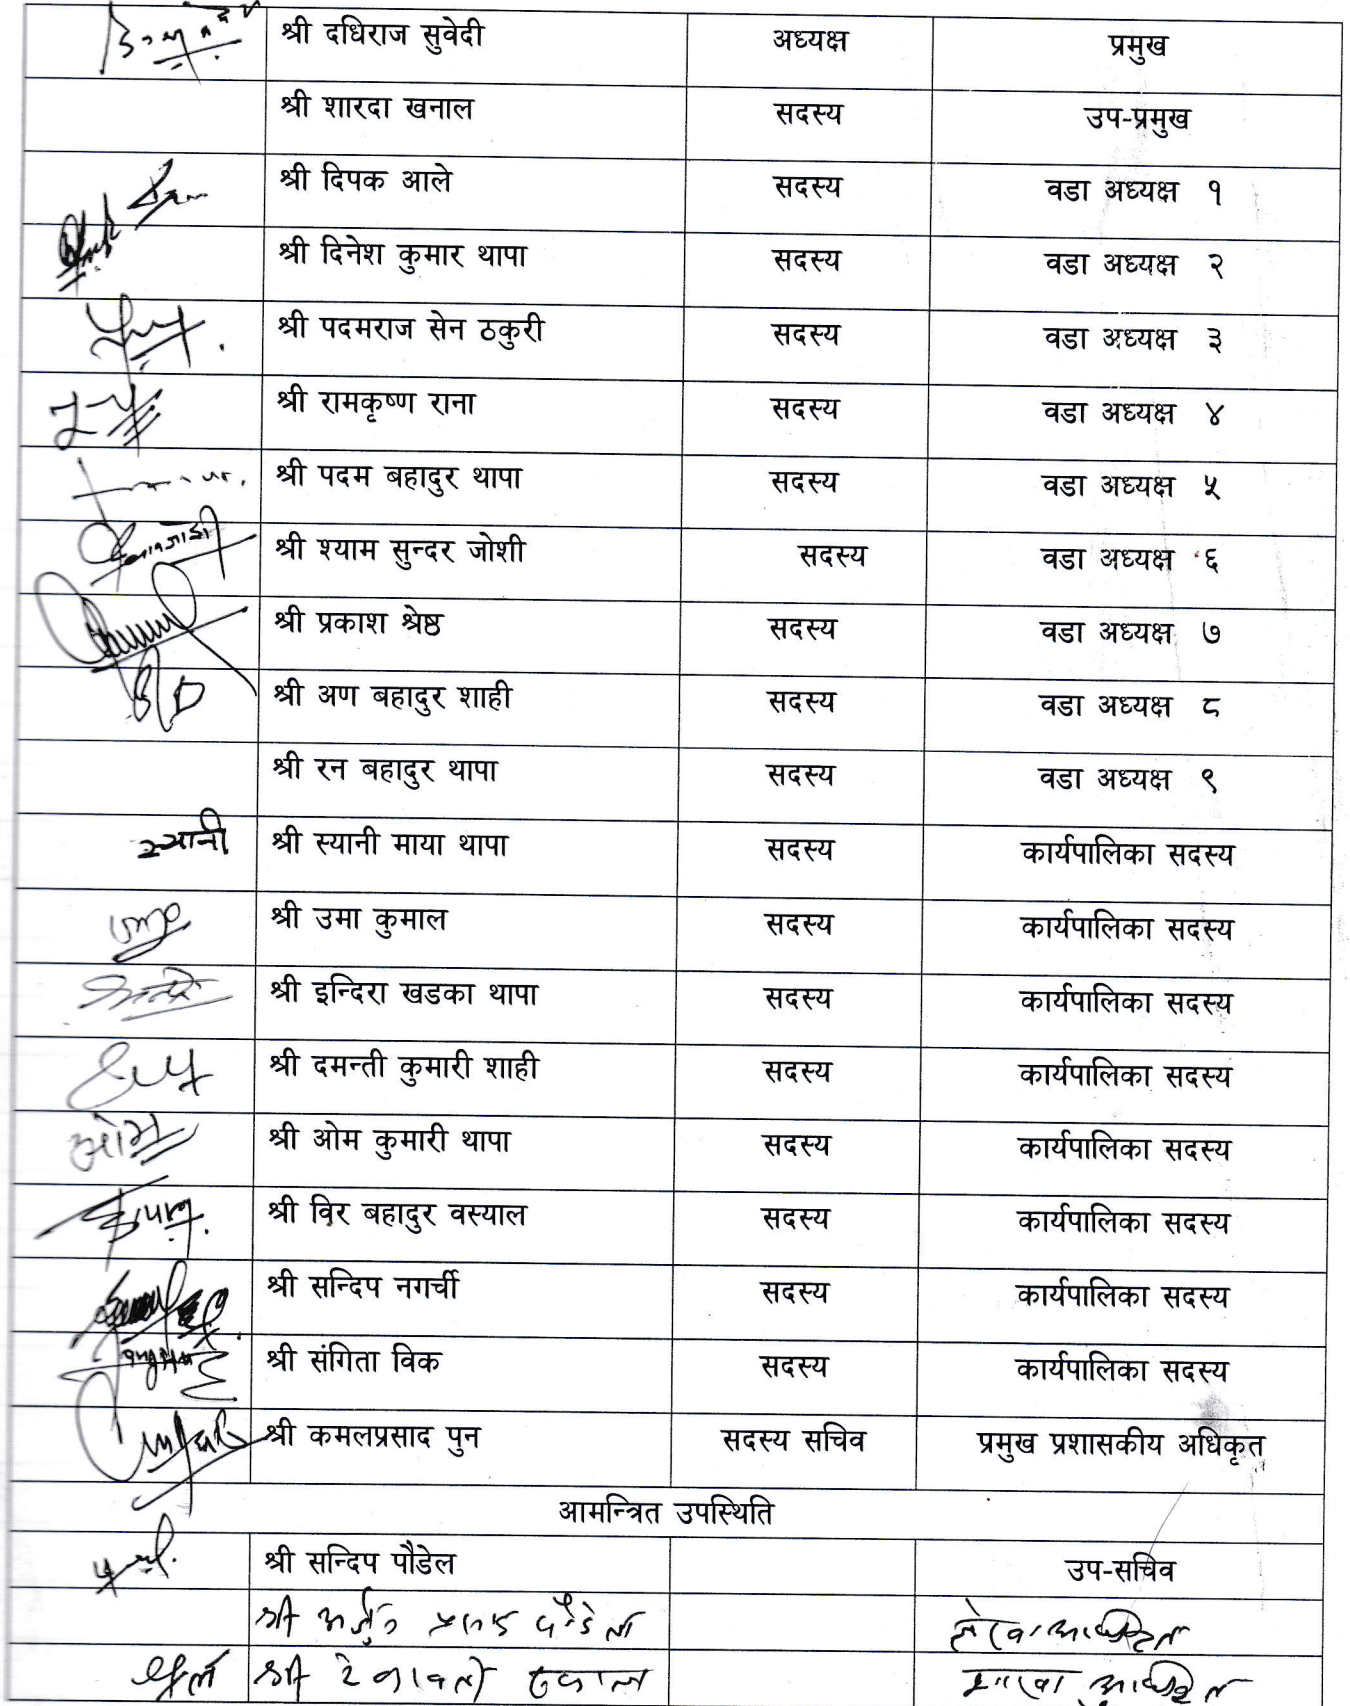 श्री दधिराज सुवेदी अध्यक्ष प्रमुख
श्री शारदा खनाल सदस्य उप-प्रमुख
श्री दिपक आले सदस्य वडा अध्यक्ष १
श्री दिनेश कुमार थापा सदस्य वडा अध्यक्ष २
श्री पदमराज सेन ठकुरी सदस्य वडा अध्यक्ष ३
श्री रामकृष्ण राना सदस्य वडा अध्यक्ष ४
श्री पदम बहादुर थापा सदस्य वडा अध्यक्ष ५
श्री श्याम सुन्दर जोशी सदस्य वडा अध्यक्ष ६
श्री प्रकाश श्रेष्ठ सदस्य वडा अध्यक्ष ७
श्री अण बहादुर शाही सदस्य वडा अध्यक्ष ८
श्री रन बहादुर थापा सदस्य वडा अध्यक्ष ९
स्यानी श्री स्यानी माया थापा सदस्य कार्यपालिका सदस्य
श्री उमा कुमाल सदस्य कार्यपालिका सदस्य
श्री इन्दिरा खडका थापा सदस्य कार्यपालिका सदस्य
श्री दमन्ती कुमारी शाही सदस्य कार्यपालिका सदस्य
ओम श्री ओम कुमारी थापा सदस्य कार्यपालिका सदस्य
श्री विर बहादुर वस्याल सदस्य कार्यपालिका सदस्य
श्री सन्दिप नगर्ची सदस्य कार्यपालिका सदस्य
श्री संगिता विक सदस्य कार्यपालिका सदस्य
श्री कमलप्रसाद पुन सदस्य सचिव प्रमुख प्रशासकीय अधिकृत
आमन्त्रित उपस्थिति
श्री सन्दिप पौडेल उप-सचिव
श्री अर्जुन प्रसाद पौडेल लेखा अधिकृत
श्री ढकाल शाखा अधिकृत